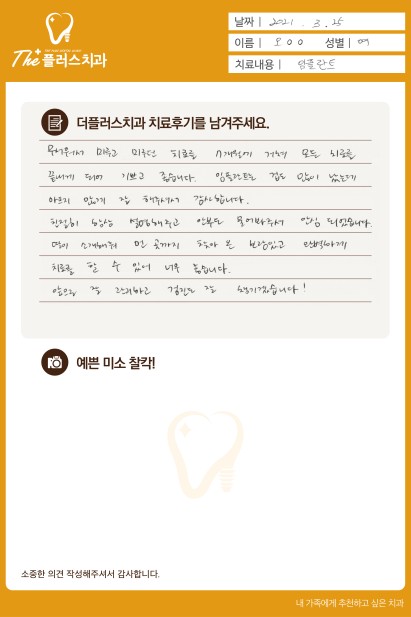 The 플러스치과
날짜 | 2021. 3. 25
이름 | 오 o o 성별 | 여
치료내용 | 임플란트
더플러스치과 치료후기를 남겨주세요.
무서워서 미루고 미루던 치료를 에 걸쳐 모든 치료를
끝나게 되어 기쁘고 좋습니다. 임플란트도 겁도 많이 났는데
아프지 않게 잘 해주셔서 감사합니다.
친절히 항상 설명해주고 안부도 물어봐주셔서 안심 되었습니다.
소개해줘 먼 곳까지 찾아 온 보람있고 완벽하게
치료를 할 수 있어 너무 좋습니다.
앞으로 잘 관리하고 검진도 잘 챙기겠습니다!
예쁜 미소 찰칵!
소중한 의견 작성해주셔서 감사합니다.
내 가족에게 추천하고 싶은 치과